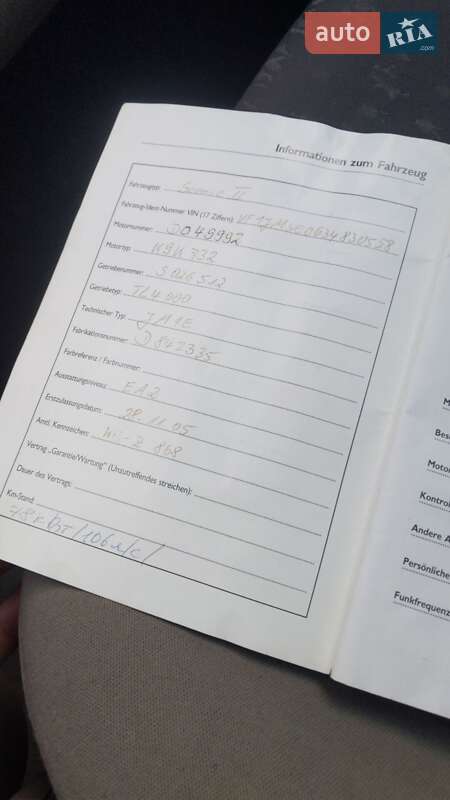 auto RIA .com
Informationen zum Fahrzeug
Fahrzeugtyp: Scenic II
Fahrzeug-Ident-Nummer VIN (17 Ziffern): VF1JM
Motornummer: D049992
Motortyp: K9K 732
Getriebenummer: S026512
Getriebetyp: TL4 000
Technischer Typ: JM1E
Fabrikationsnummer: D842335
Farbreferenz / Farbnummer:
Ausstattungsniveau: EA2
Erstzulassungsdatum: 28.11.05
Amtl. Kennzeichen:
Vertrag „Garantie/Wartung" (Unzutreffendes streichen):
Dauer des Vertrags:
Km-Stand:
M
Bes
Moto
Kontrol
Andere A
Persönliche
Funkfrequenz